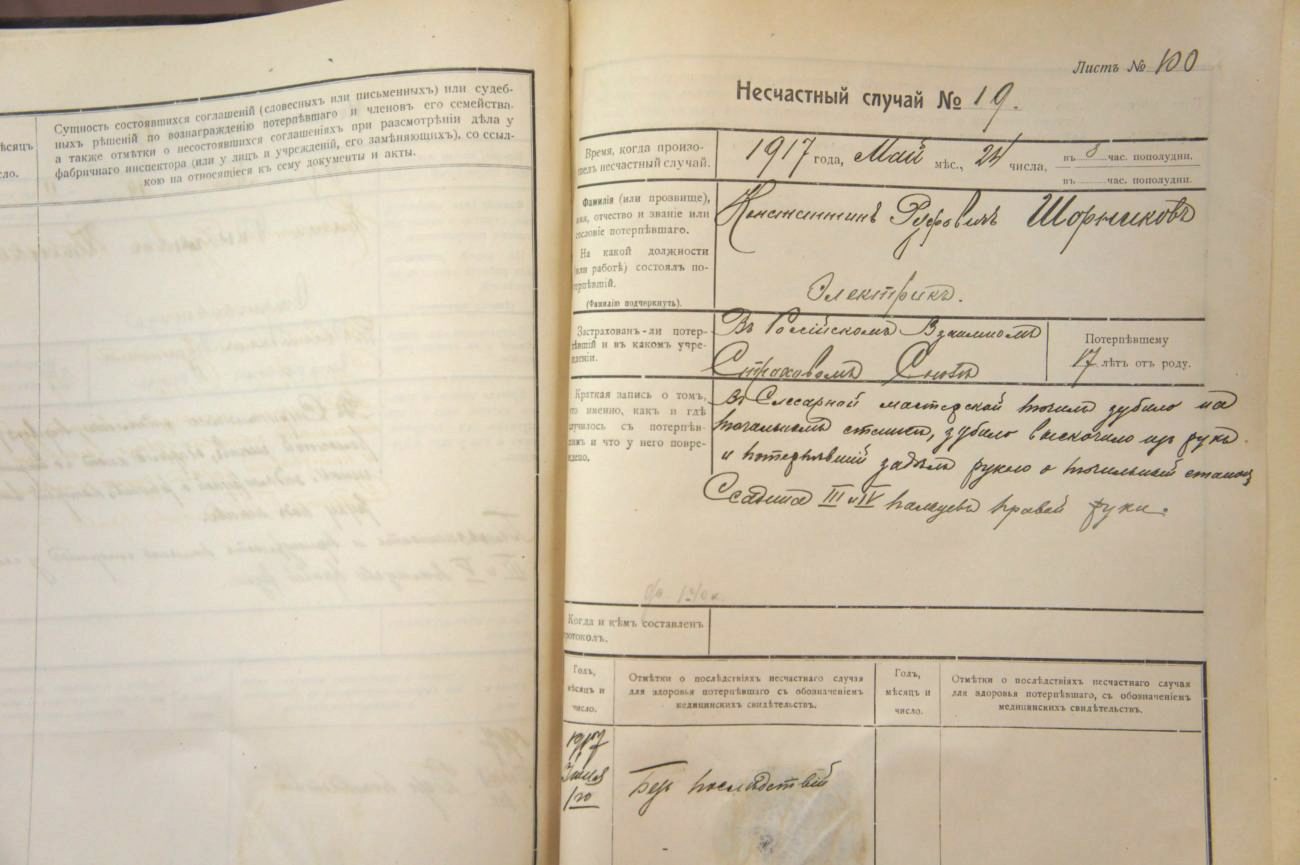 Сущность состоявшихся соглашеній (словесныхъ или письменныхъ) или судеб-
ныхъ рѣшеній по вознагражденію потерпѣвшаго и членовъ его семейства.
а также отмѣтки о несостоявшихся соглашеніяхъ при разсмотрѣніи дѣла у
фабричнаго инспектора (или у лицъ и учрежденій, его замѣняющихъ), со ссыл-
кою на относящіеся къ сему документы и акты.
Листъ № 100
Несчастный случай № 19.
Время, когда произо-
шелъ несчастный случай.
1917 года, Май мѣс., 24 числа, въ 3 час. пополудни.
въ час. пополудни.
Фамилія (или прозвище),
имя, отчество и званіе или
сословіе потерпѣвшаго.
Константинъ Руфовичъ Шорниковъ
На какой должности
(или работѣ) состоялъ по-
терпѣвшій.
(Фамилію подчеркнуть).
Электрикъ.
Застрахованъ-ли потер-
пѣвшій и въ какомъ учре-
жденіи.
Въ Россійскомъ Взаимномъ
Страховомъ Союзѣ
Потерпѣвшему
17 лѣтъ отъ роду.
Краткая запись о томъ,
что именно, какъ и гдѣ
случилось съ потерпѣв-
шимъ и что у него повре-
ждено.
Въ Слесарной мастерской точилъ зубило на
точильномъ станкѣ, зубило выскочило изъ рукъ
и потерпѣвшій задѣлъ рукою о точильный станокъ
Ссадина III и IV пальцевъ правой руки.
Когда и кѣмъ составленъ
протоколъ.
Годъ,
мѣсяцъ и
число.
Отмѣтки о послѣдствіяхъ несчастнаго случая
для здоровья потерпѣвшаго съ обозначеніемъ
медицинскихъ свидѣтельствъ.
Годъ,
мѣсяцъ и
число.
Отмѣтки о послѣдствіяхъ несчастнаго случая
для здоровья потерпѣвшаго, съ обозначеніемъ
медицинскихъ свидѣтельствъ.
1917
Безъ послѣдствій